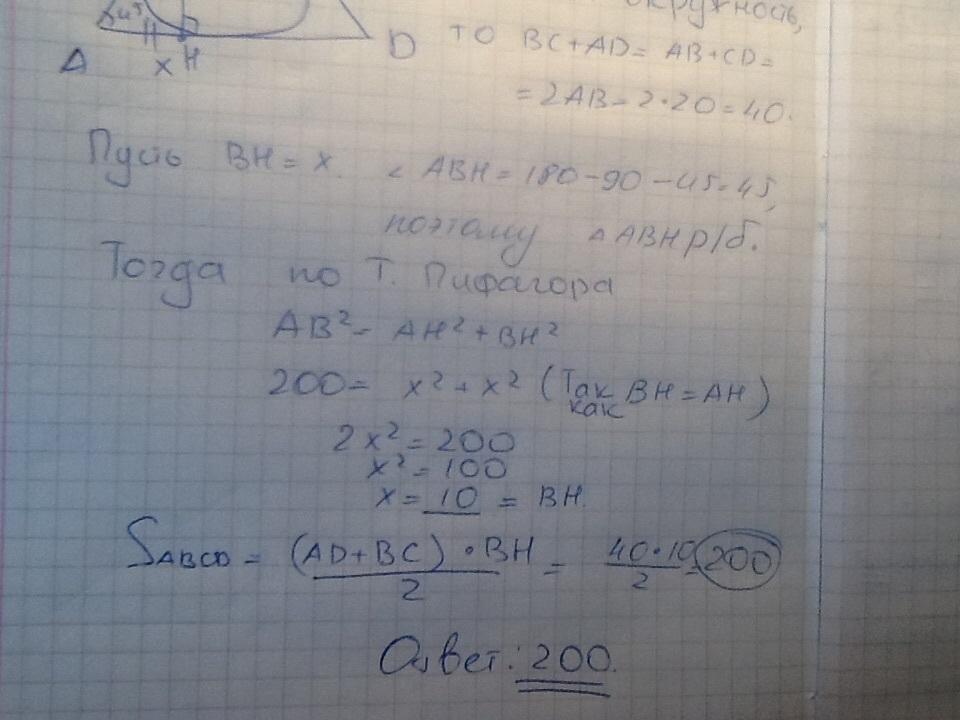 окружность,
45°
A x H D
то BC+AD= AB+CD=
= 2AB= 2·20=40.
Пусть BH = x. ∠ ABH = 180-90-45=45,
поэтому △ABH р/б.
Тогда по т. Пифагора
AB²= AH²+BH²
200= x²+x² (Так как BH=AH)
2x²=200
x²=100
x= 10 = BH.
SABCD = (AD+BC)·BH/2 = 40·10/2 = 200
Ответ: 200.